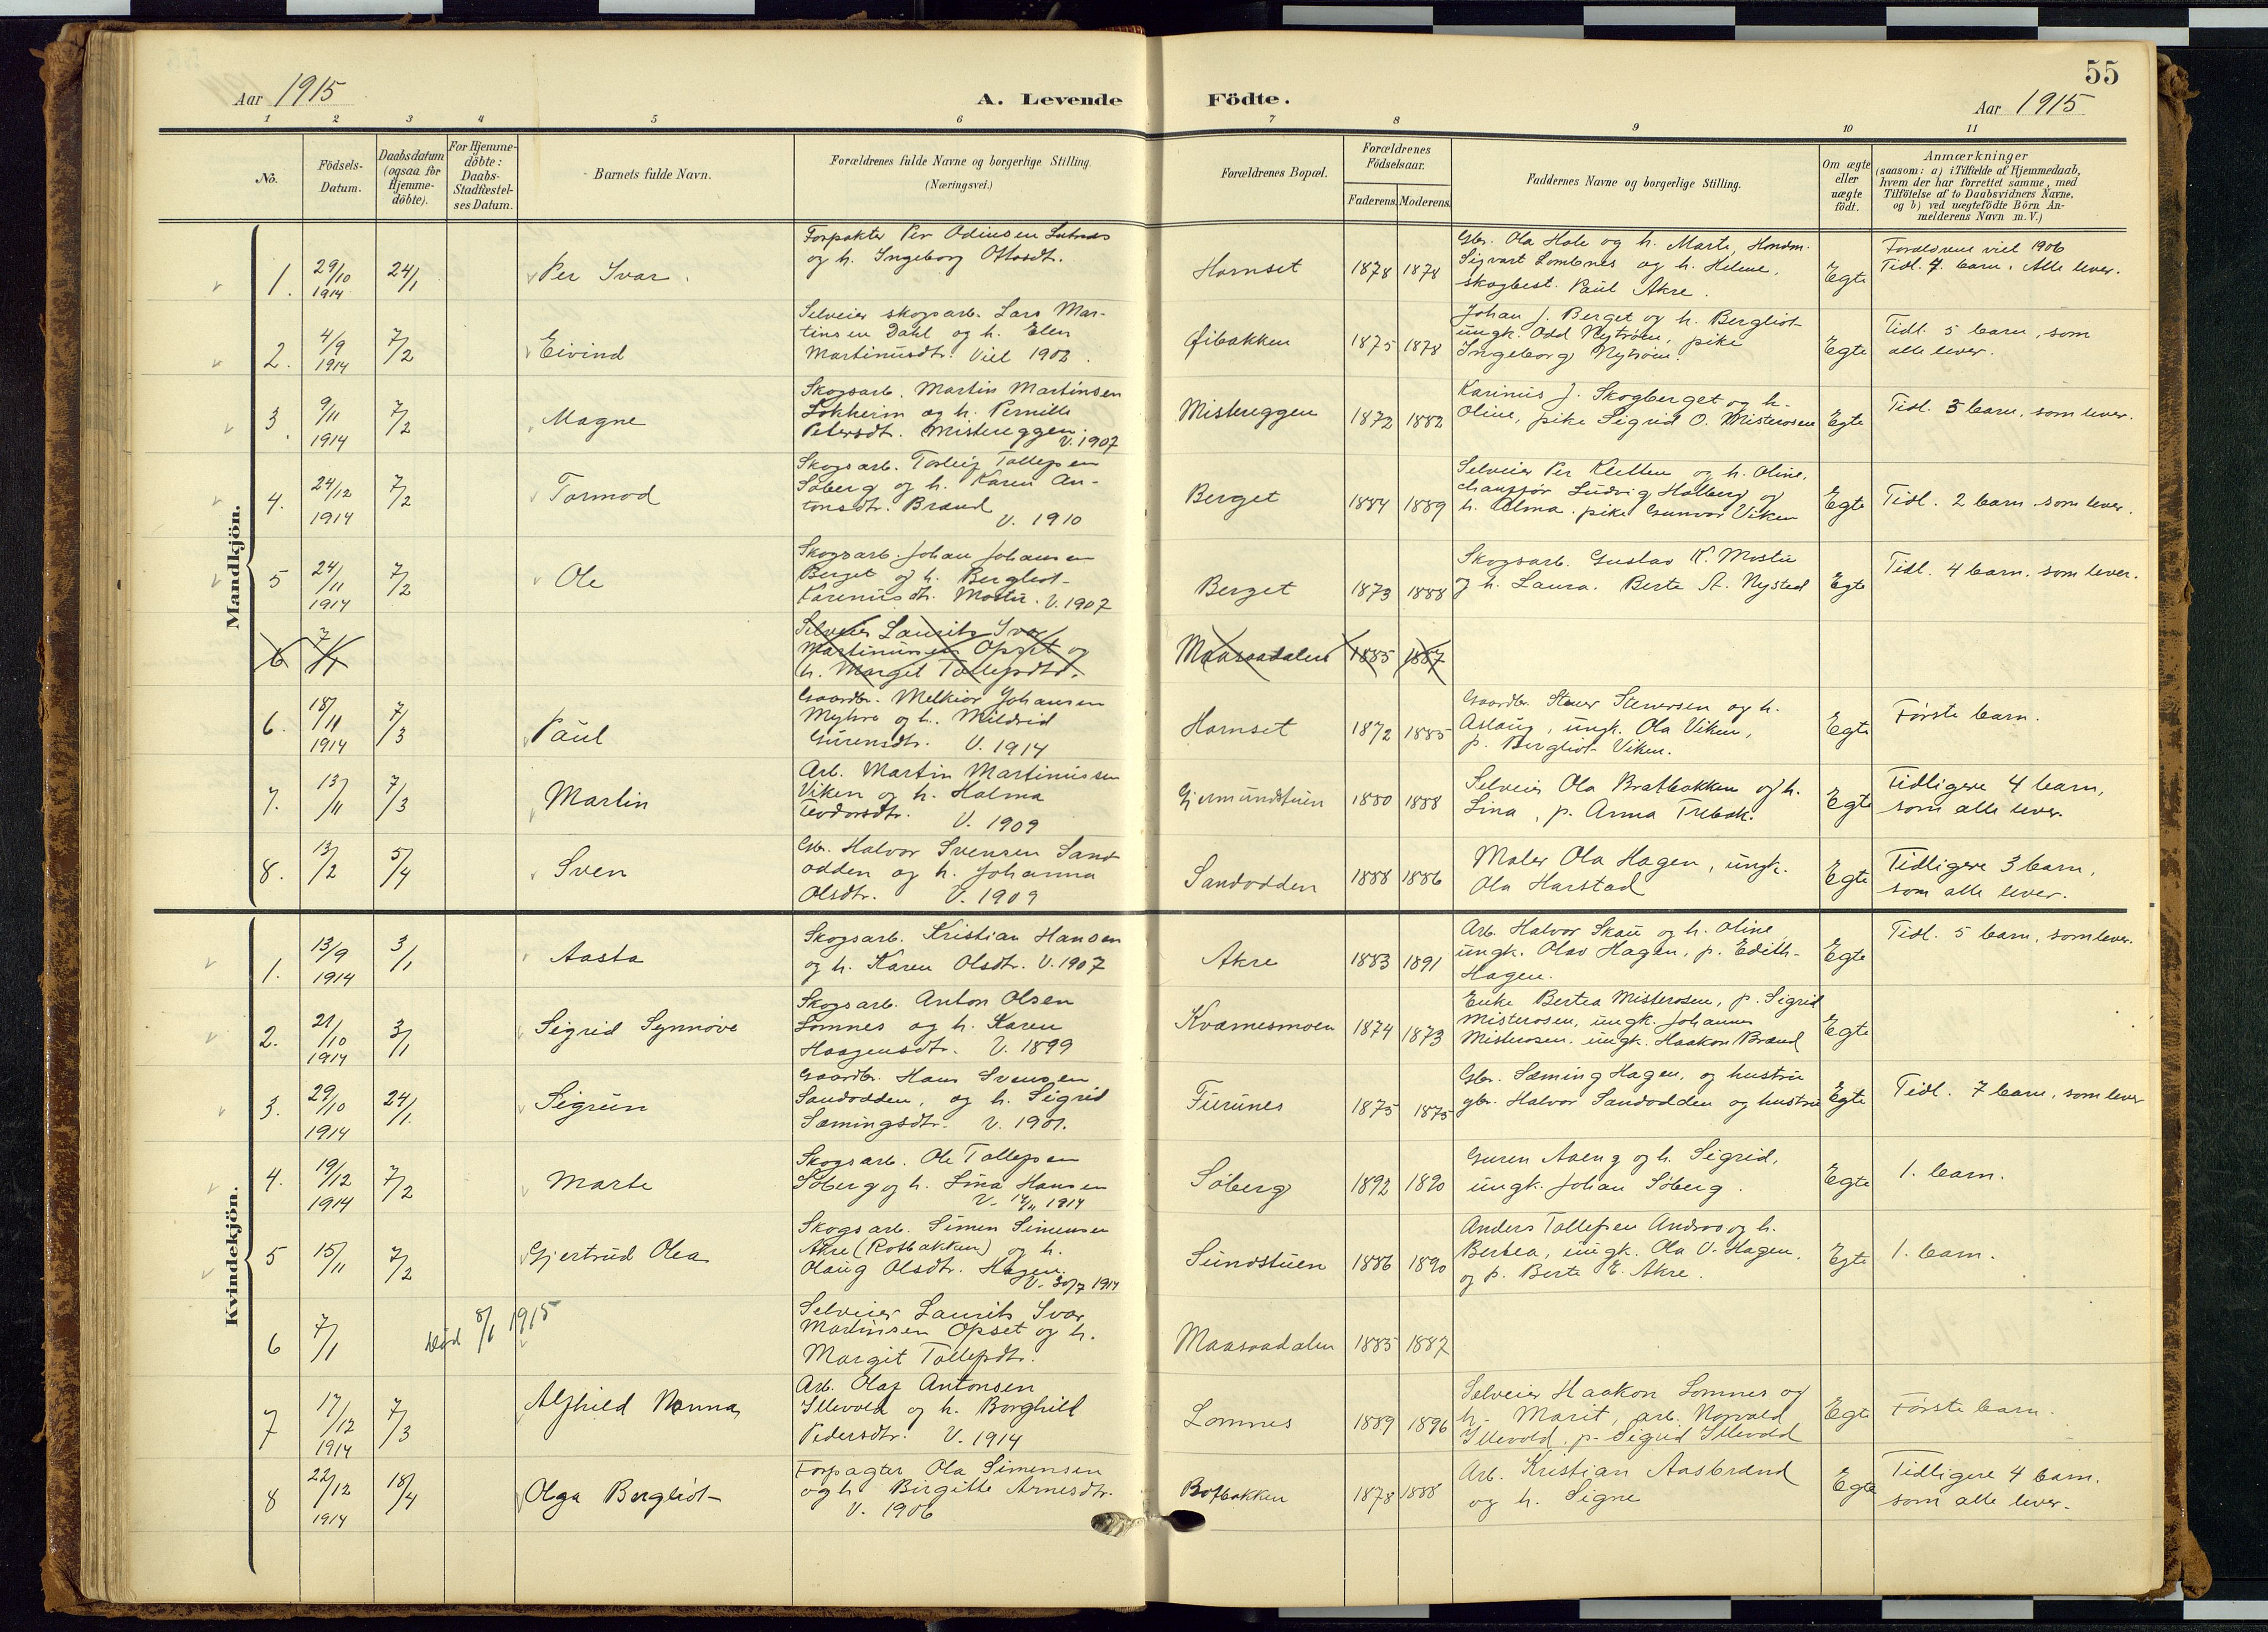 55
Aar 1915
A. Levende Födte.
Aar 1915
1 2 3 4 5 6 7 8 9 10 11
No.
Födsels-
Datum.
Daabsdatum
(ogsaa for
Hjemme-
döbte).
For Hjemme-
döbte:
Daabs-
Stadfæstel-
ses Datum.
Barnets fulde Navn.
Forældrenes fulde Navne og borgerlige Stilling.
(Næringsvei.)
Forældrenes Bopæl.
Forældrenes
Födselsaar.
Faderens. Moderens.
Faddernes Navne og borgerlige Stilling.
Om ægte
eller
uægte
födt.
Anmærkninger
(saasom: a) i Tilfælde af Hjemmedaab,
hvem der har forrettet samme, med
Tilföielse af to Daabsvidners Navne,
og b) ved uægtefödte Börn An-
melderens Navn m. V.)
Mandkjön.
1. 29/10 1914 24/1 Per Ivar.
Forpakter Per Odinsen
og h. Ingeborg Ottosdt.
Hornset 1878 1878
Gbr. Ola Hole og h. Marte, Handm.
Sigvart Lombnes og h. Helene,
skogbest. Paul Akre.
Egte
Foreldrene viet 1906
Tidl. 4 barn. Alle lever.
2. 4/9 1914 7/2 Eivind
Selveier skogsarb. Lars Mar-
tinsen Dahl og h. Elen
Martinusdtr. Viet 1902.
Øibakken 1875 1878
Johan J. Berget og h. Bergliot
ungk. Odd Nystrøm, pike
Ingeborg Nystrøm.
Egte
Tidl. 5 barn, som
alle lever.
3. 9/11 1914 7/2 Magne
Skogsarb. Martin Martinsen
Løkheim og h. Pernille
Petersdt. Mistereggen. V. 1907
Mistereggen 1872 1882
Karinus J. Skogberget og h.
Oline, pike Sigrid O. Misterosen
Egte
Tidl. 3 barn, som lever.
4. 24/12 1914 7/2 Tormod
Skogsarb. Torleif Tollefsen
Søberg og h. Karen An-
tonsdtr. Brænd
V. 1910
Berget 1884 1889
Selveier Per Kletten og h. Oline,
chauffør Ludvig Halberg og
h. Alma. pike Gunvor Viken
Egte
Tidl. 2 barn som lever.
5 24/11 1914 7/2 Ole
Skogsarb. Johan Johansen
Berget og h. Bergliot
Karenusdt. Mostu. V. 1907
Berget 1873 1888
Skogsarb. Gustav K. Mostu
og h. Laura. Berte A. Nysted
Egte
Tidl. 4 barn. som lever.
6 7/1
Selveier Laurits Ivar
Martinusen Opset og
h. Margit Tollefsdtr.
Maasaadalen 1885 1887
6. 18/11 1914 7/3 Paul
Gaardbr. Melkior Johansen
Myhre og h. Mildrid
Gurensdtr. V. 1914
Hornset 1872 1885
Gaardbr. Stener Stenersen og h.
Aslaug, ungk. Ola Viken,
p. Bergliot Viken.
Egte
Første barn.
7. 13/11 7/3 Martin
Arb. Martin Martinussen
Viken og h. Halma
Teodorsdtr. V. 1909
Gjermundstuen 1880 1888
Selveier Ola Bratbakken og h.
Lina, p. Anna Trebak.
Egte
Tidligere 4 barn,
som alle lever.
8. 13/2 5/4 Sven
Gbr. Halvor Svensen Sand-
odden og h. Johanna
Olsdtr. V. 1909
Sandodden 1888 1886
Maler Ola Hagen, ungk.
Ola Harstad
Egte
Tidligere 3 barn,
som alle lever.
Kvindekjön.
1. 13/9 1914 3/1 Aasta
Skogsarb. Kristian Hansen
og h. Karen Olsdtr. V. 1907
Akre 1883 1891
Arb. Halvor Skau og h. Oline
ungk. Olav Hagen, p. Edith
Hagen.
Egte
Tidl. 5 barn, som lever.
2. 21/10 1914 3/1 Sigrid Synnøve
Skogsarb. Anton Olsen
Lomnes og h. Karen
Haagensdtr. V. 1899
Kvernesmoen 1874 1873
Enke Bertea Misterosen, p. Sigrid
Misterosen, ungk. Johannes
Misterosen, ungk. Haakon Brænd
Egte
3. 29/10 1914 24/1. Sigrun
Gaardbr. Hans Svensen
Sandodden, og h. Sigrid
Sæmingsdtr. V. 1901.
Furunes 1875 1875
Gbr. Sæming Hagen, og hustru
gbr. Halvor Sandodden og hustru
Egte
Tidl. 7 barn, som lever
4. 19/12 1914 7/2 Marte
Skogsarb. Ole Tollefsen
Søberg og h. Lina Hansen
V. 14/11 1914
Søberg 1892 1890
Guren Aaeng og h. Sigrid,
ungk. Johan Søberg.
Egte
1. barn.
5 15/11 7/2 Gjertrud Olea
Skogsarb. Simen Simensen
Akre (Rotbakken) og h.
Olaug Olsdtr. Hagen.
V. 30/7 1914
Sundstuen 1886 1890
Anders Tollefsen Andraa og h.
Bertea, ungk. Ola O. Hagen,
og p. Berte E. Akre.
Egte
1. barn.
6 7/1 død 8/1 1915
Selveier Laurits Ivar
Martinsen Opset og h.
Margit Tollefsdtr.
Maasaadalen 1885 1887
7 17/12 1914 7/3 Alfhild Nanna
Arb. Olaf Antonsen
Illevold og h. Borghild
Pedersdtr. V. 1914
Lomnes 1889 1896
Selveier Haakon Lomnes og
h. Marit, arb. Norvald
Illevold, p. Sigrid Illevold
Egte
Første barn.
8 22/12 1914 18/4 Olga Bergliot
Forpagter Ola Simensen
og h. Birgitte Arnesdtr.
V. 1906
Rotbakken 1878 1888
Arb. Kristian Aasbrænd
og h. Signe
Egte
Tidligere 4 barn.
som alle lever.